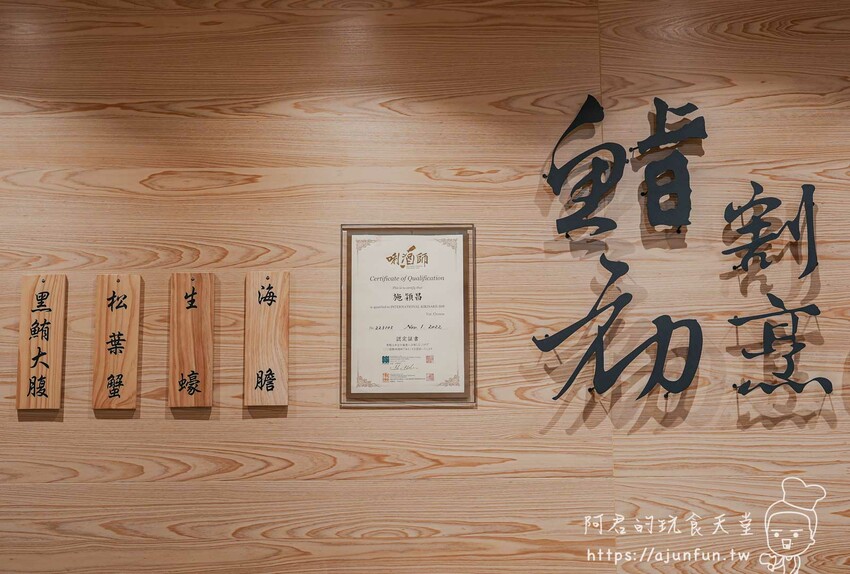 鮨初
割烹
黑鮪大腹
松葉蟹
生蠔
海膽
唎酒師
Certificate of Qualification
This is to certify that
施穎昌
認定証書
阿君的玩食天堂
https://ajunfun.tw